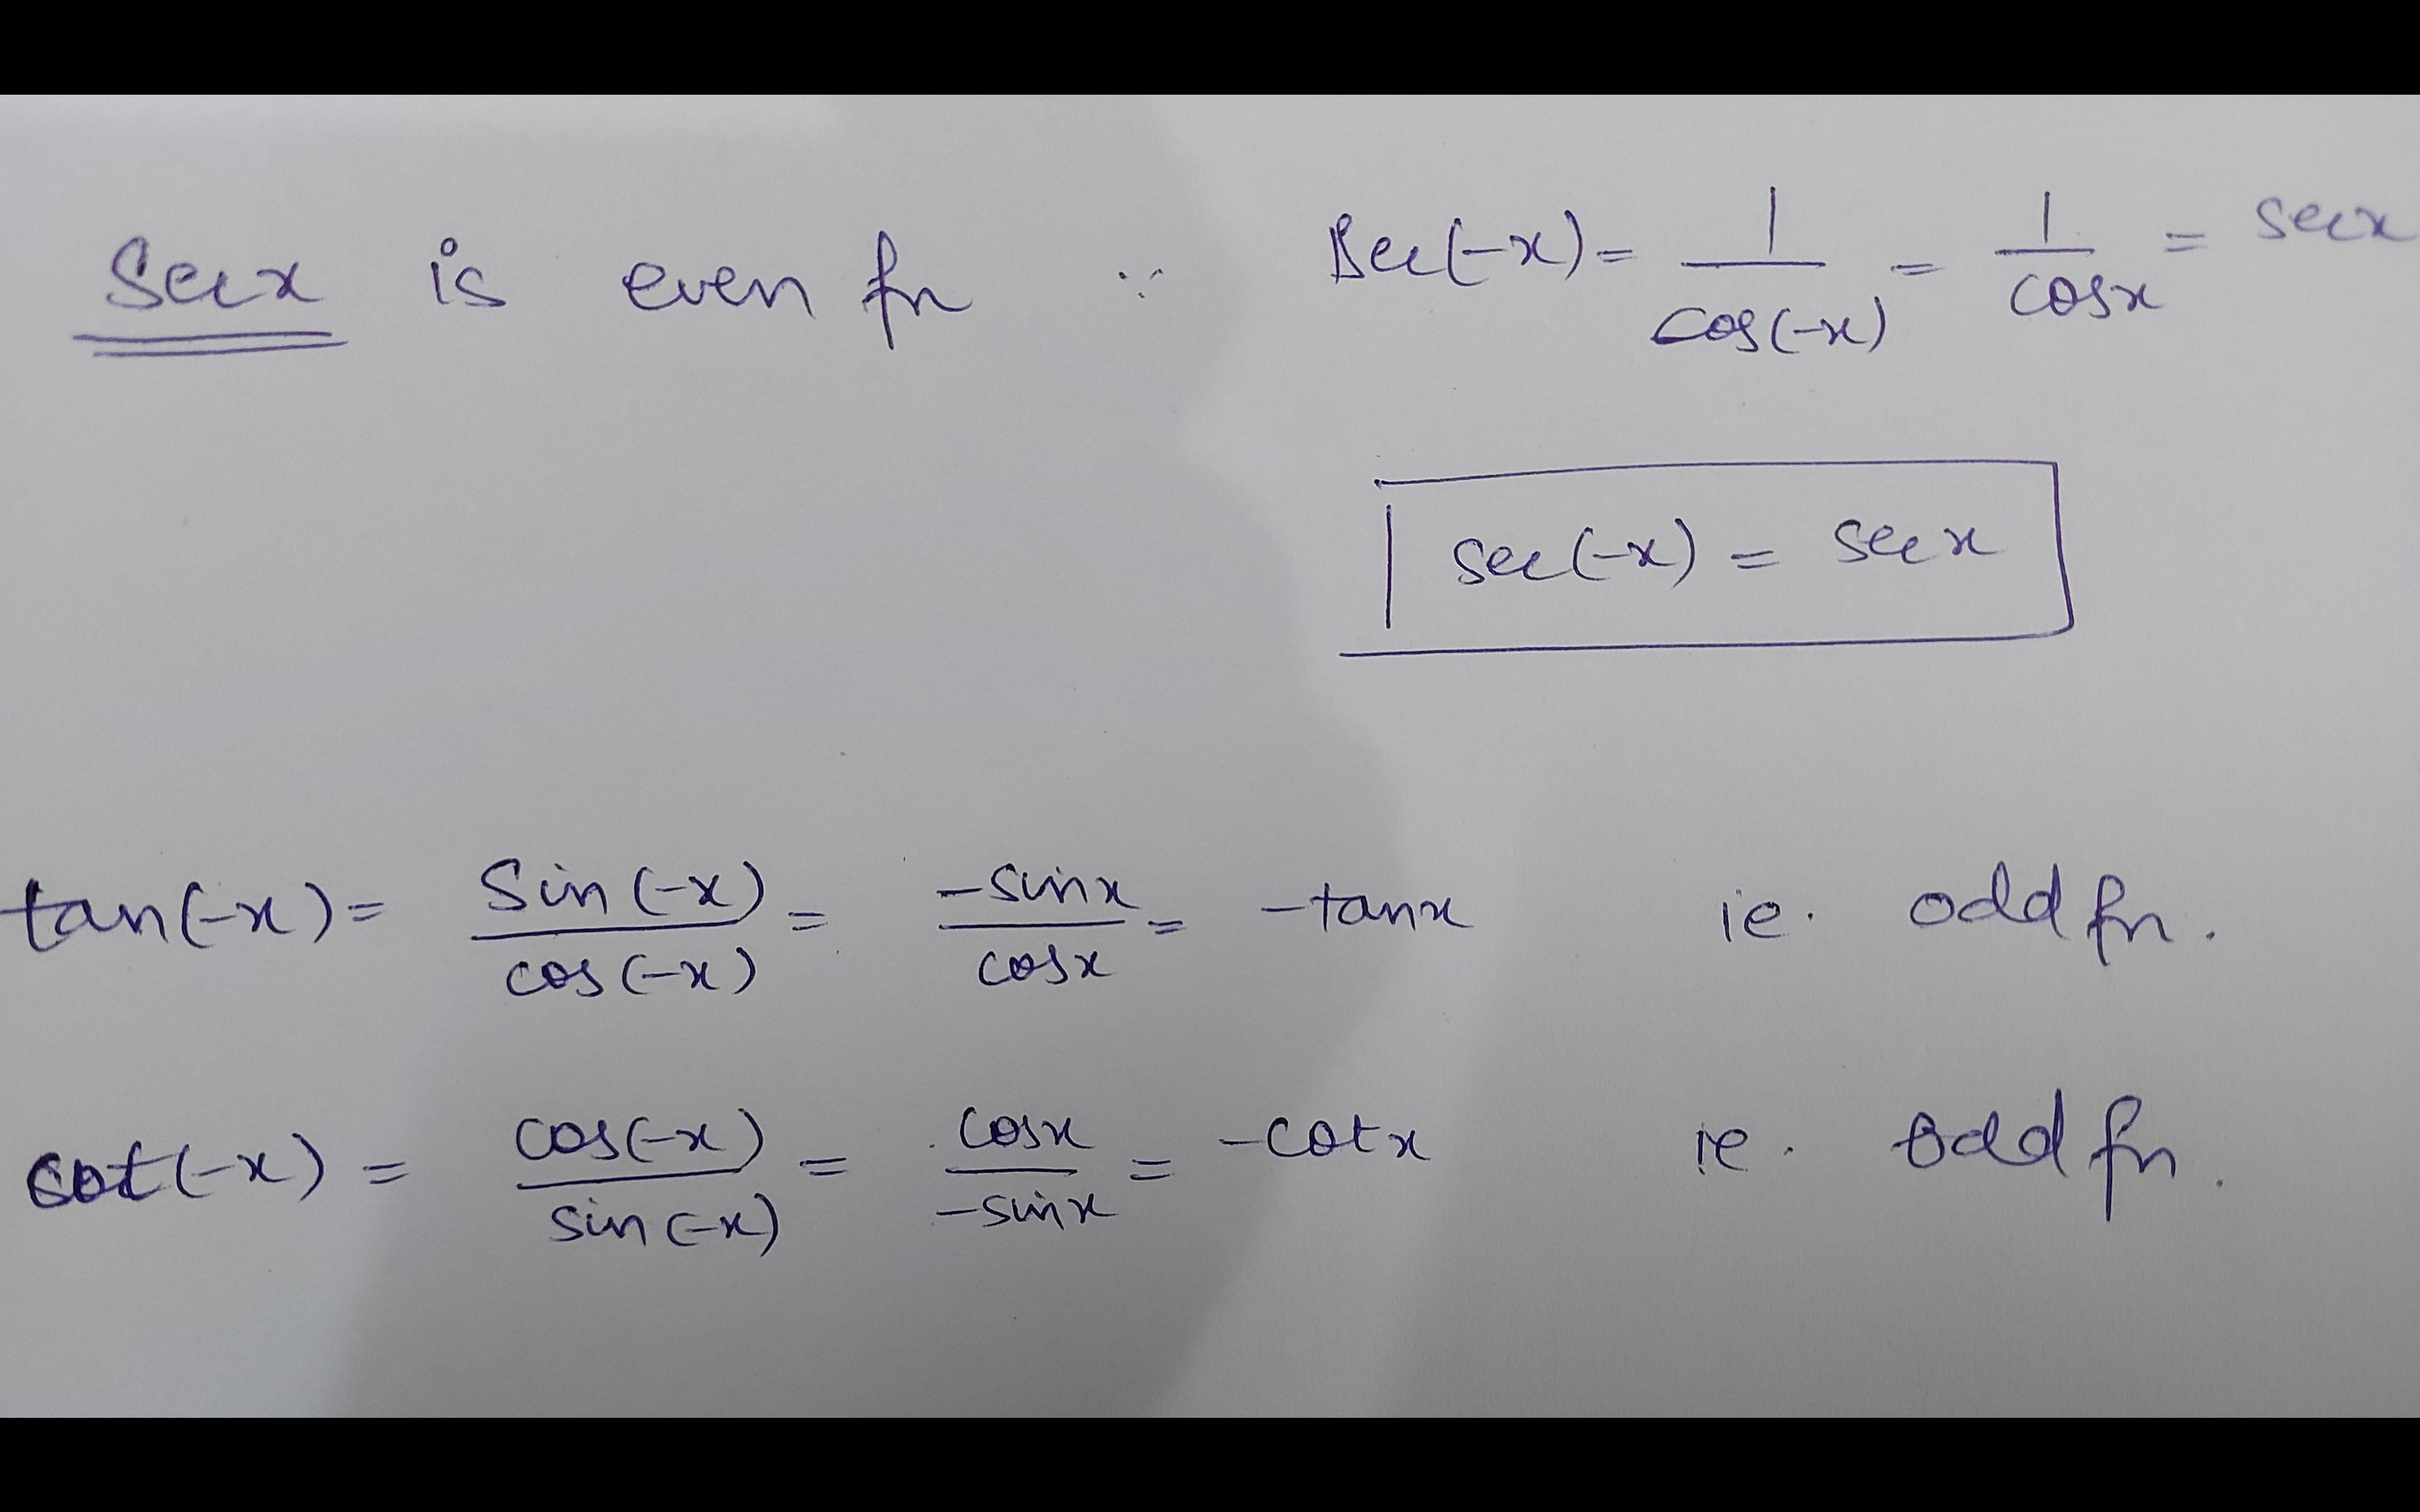 Secx is even fn ∵ Sec(-x) = 1/cos(-x) = 1/cosx = secx
sec(-x) = secx
tan(-x) = Sin(-x)/cos(-x) = -sinx/cosx = -tanx ie. odd fn.
cot(-x) = cos(-x)/sin(-x) = cosx/-sinx = -cotx ie. odd fn.